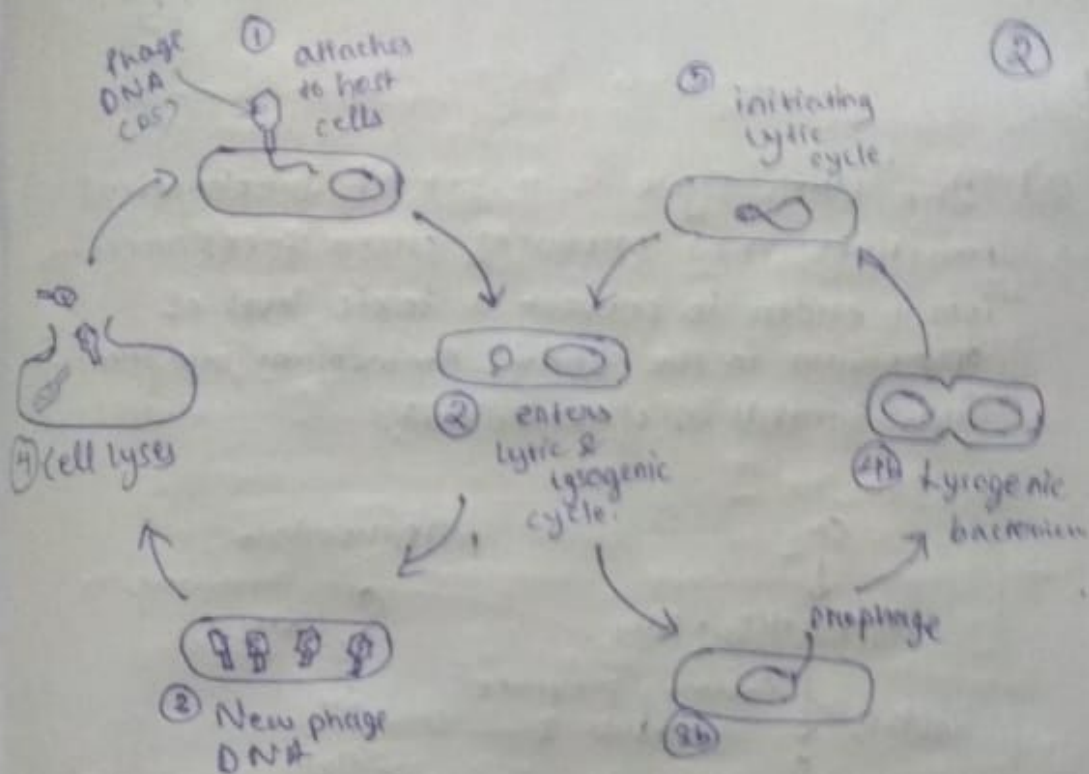 ②
①
Phage
DNA
(DS)
attaches
to host
cells
⑤
initiating
lytic
cycle
②
enters
lytic &
lysogenic
cycle.
④ Cell lyses
4b Lysogenic
bacterium
prophage
③ New phage
DNA
3b